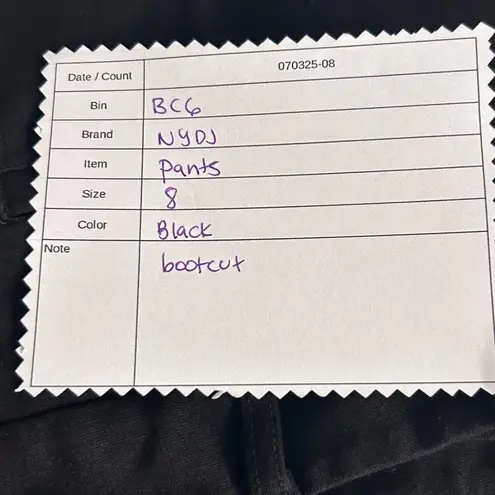 Date / Count 070325-08
Bin BC6
Brand NYDJ
Item Pants
Size 8
Color Black
Note bootcut